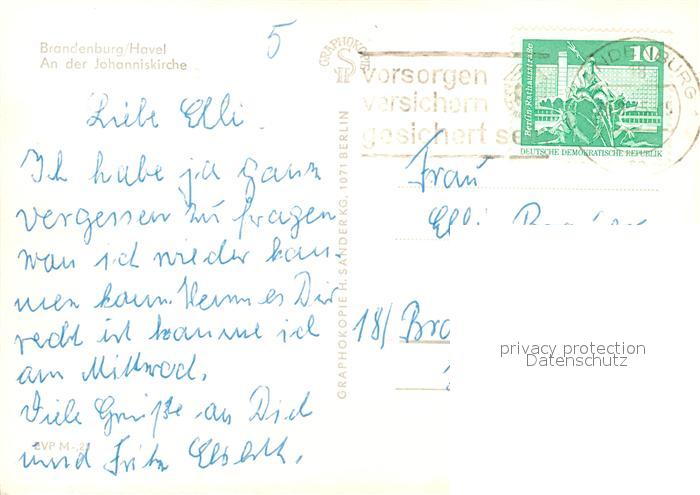 5
Brandenburg/Havel
An der Johanniskirche
Liebe Elli.
Ich habe ja ganz
vergessen zu fragen
wan ich wieder kom-
men kann. Wenn es Dir
recht ist komme ich
am Mittwoch.
Viele Grüße an Dich
und Fritz
EVP M -,25
GRAPHOKOPIE H. SANDER KG, 1071 BERLIN
GRAPHOKOPIE
vorsorgen
versichern
gesichert
10
Berlin-Rathausstraße
DEUTSCHE DEMOKRATISCHE REPUBLIK
Frau
Elli
18/ Bra
privacy protection
Datenschutz